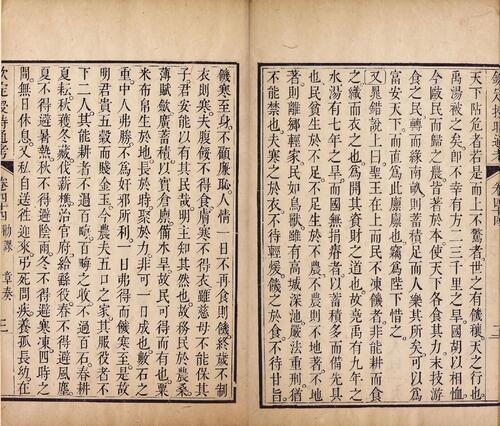 天下阽危者若是而上不驚者世之有饑穰天之行也
禹湯被之矣即不幸有方二三千里之旱國胡以相恤
今敺民而歸之農皆著於本使天下各食其力末技游
食之民轉而緣南畝則蓄積足而人樂其所矣可以爲
富安天下而直爲此廩廩也竊爲陛下惜之
又晁錯說上曰聖王在上而民不凍饑者非能耕而食
之織而衣之也爲開其資財之道也故堯禹有九年之
水湯有七年之旱而國無捐瘠者以蓄積多而備先具
也民貧生於不足不足生於不農不農則不地著不地
著則離鄉輕家民如鳥獸雖有高城深池嚴法重刑猶
不能禁也夫寒之於衣不待輕煖饑之於食不待甘旨
饑寒至身不顧廉恥人情一日不再食則饑終歲不制
衣則寒夫腹饑不得食膚寒不得衣雖慈母不能保其
子君安能以有其民哉明主知其然也故務民於農桑
薄賦斂廣蓄積以實倉廩備水旱故民可得而有也粟
米布帛生於地長於時聚於力非可一日成也數石之
重中人弗勝不爲奸邪所利一日弗得而饑寒至是故
明君貴五穀而賤金玉今農夫五口之家其服役者不
下二人其能耕者不過百畮百畮之收不過百石春耕
夏耘秋穫冬藏伐薪樵治官府給繇役春不得避風塵
夏不得避暑熱秋不得避陰雨冬不得避寒凍四時之
間無日休息又私自送往迎來弔死問疾養孤長幼在
欽定授時通考 卷四四 勸課 章奏 三